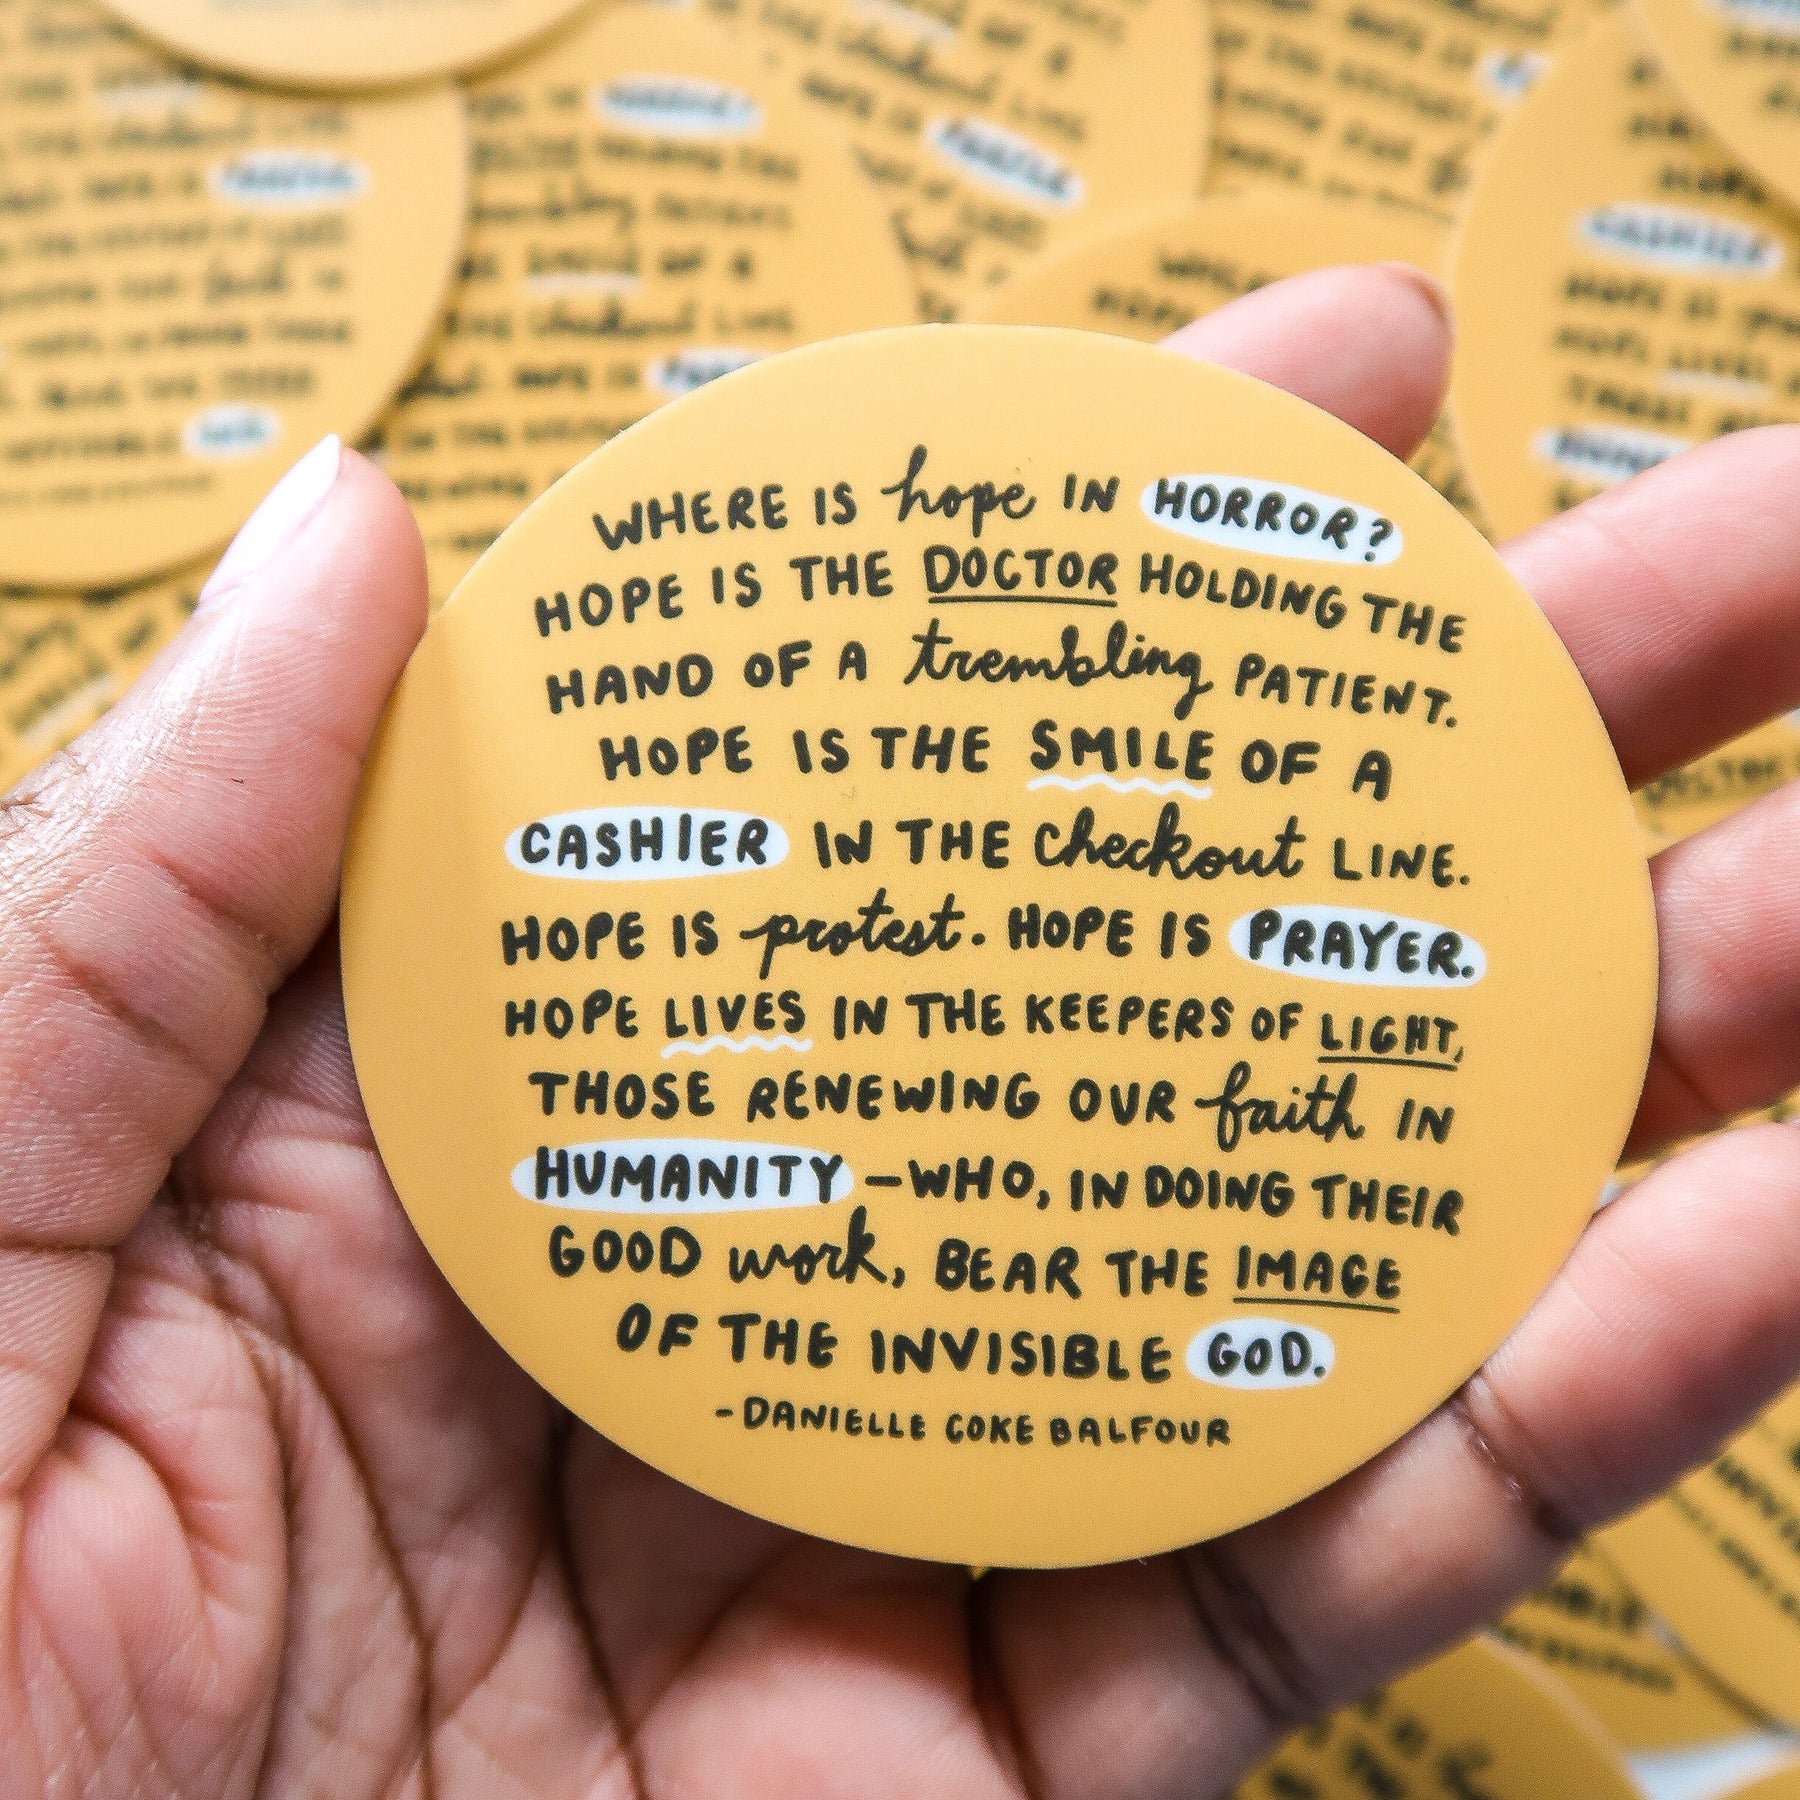 WHERE IS hope IN HORROR?
HOPE IS THE DOCTOR HOLDING THE
HAND OF A trembling PATIENT.
HOPE IS THE SMILE OF A
CASHIER IN THE checkout LINE.
HOPE IS protest. HOPE IS PRAYER.
HOPE LIVES IN THE KEEPERS OF LIGHT,
THOSE RENEWING OUR faith IN
HUMANITY -WHO, IN DOING THEIR
GOOD work, BEAR THE IMAGE
OF THE INVISIBLE GOD.
-DANIELLE COKE BALFOUR